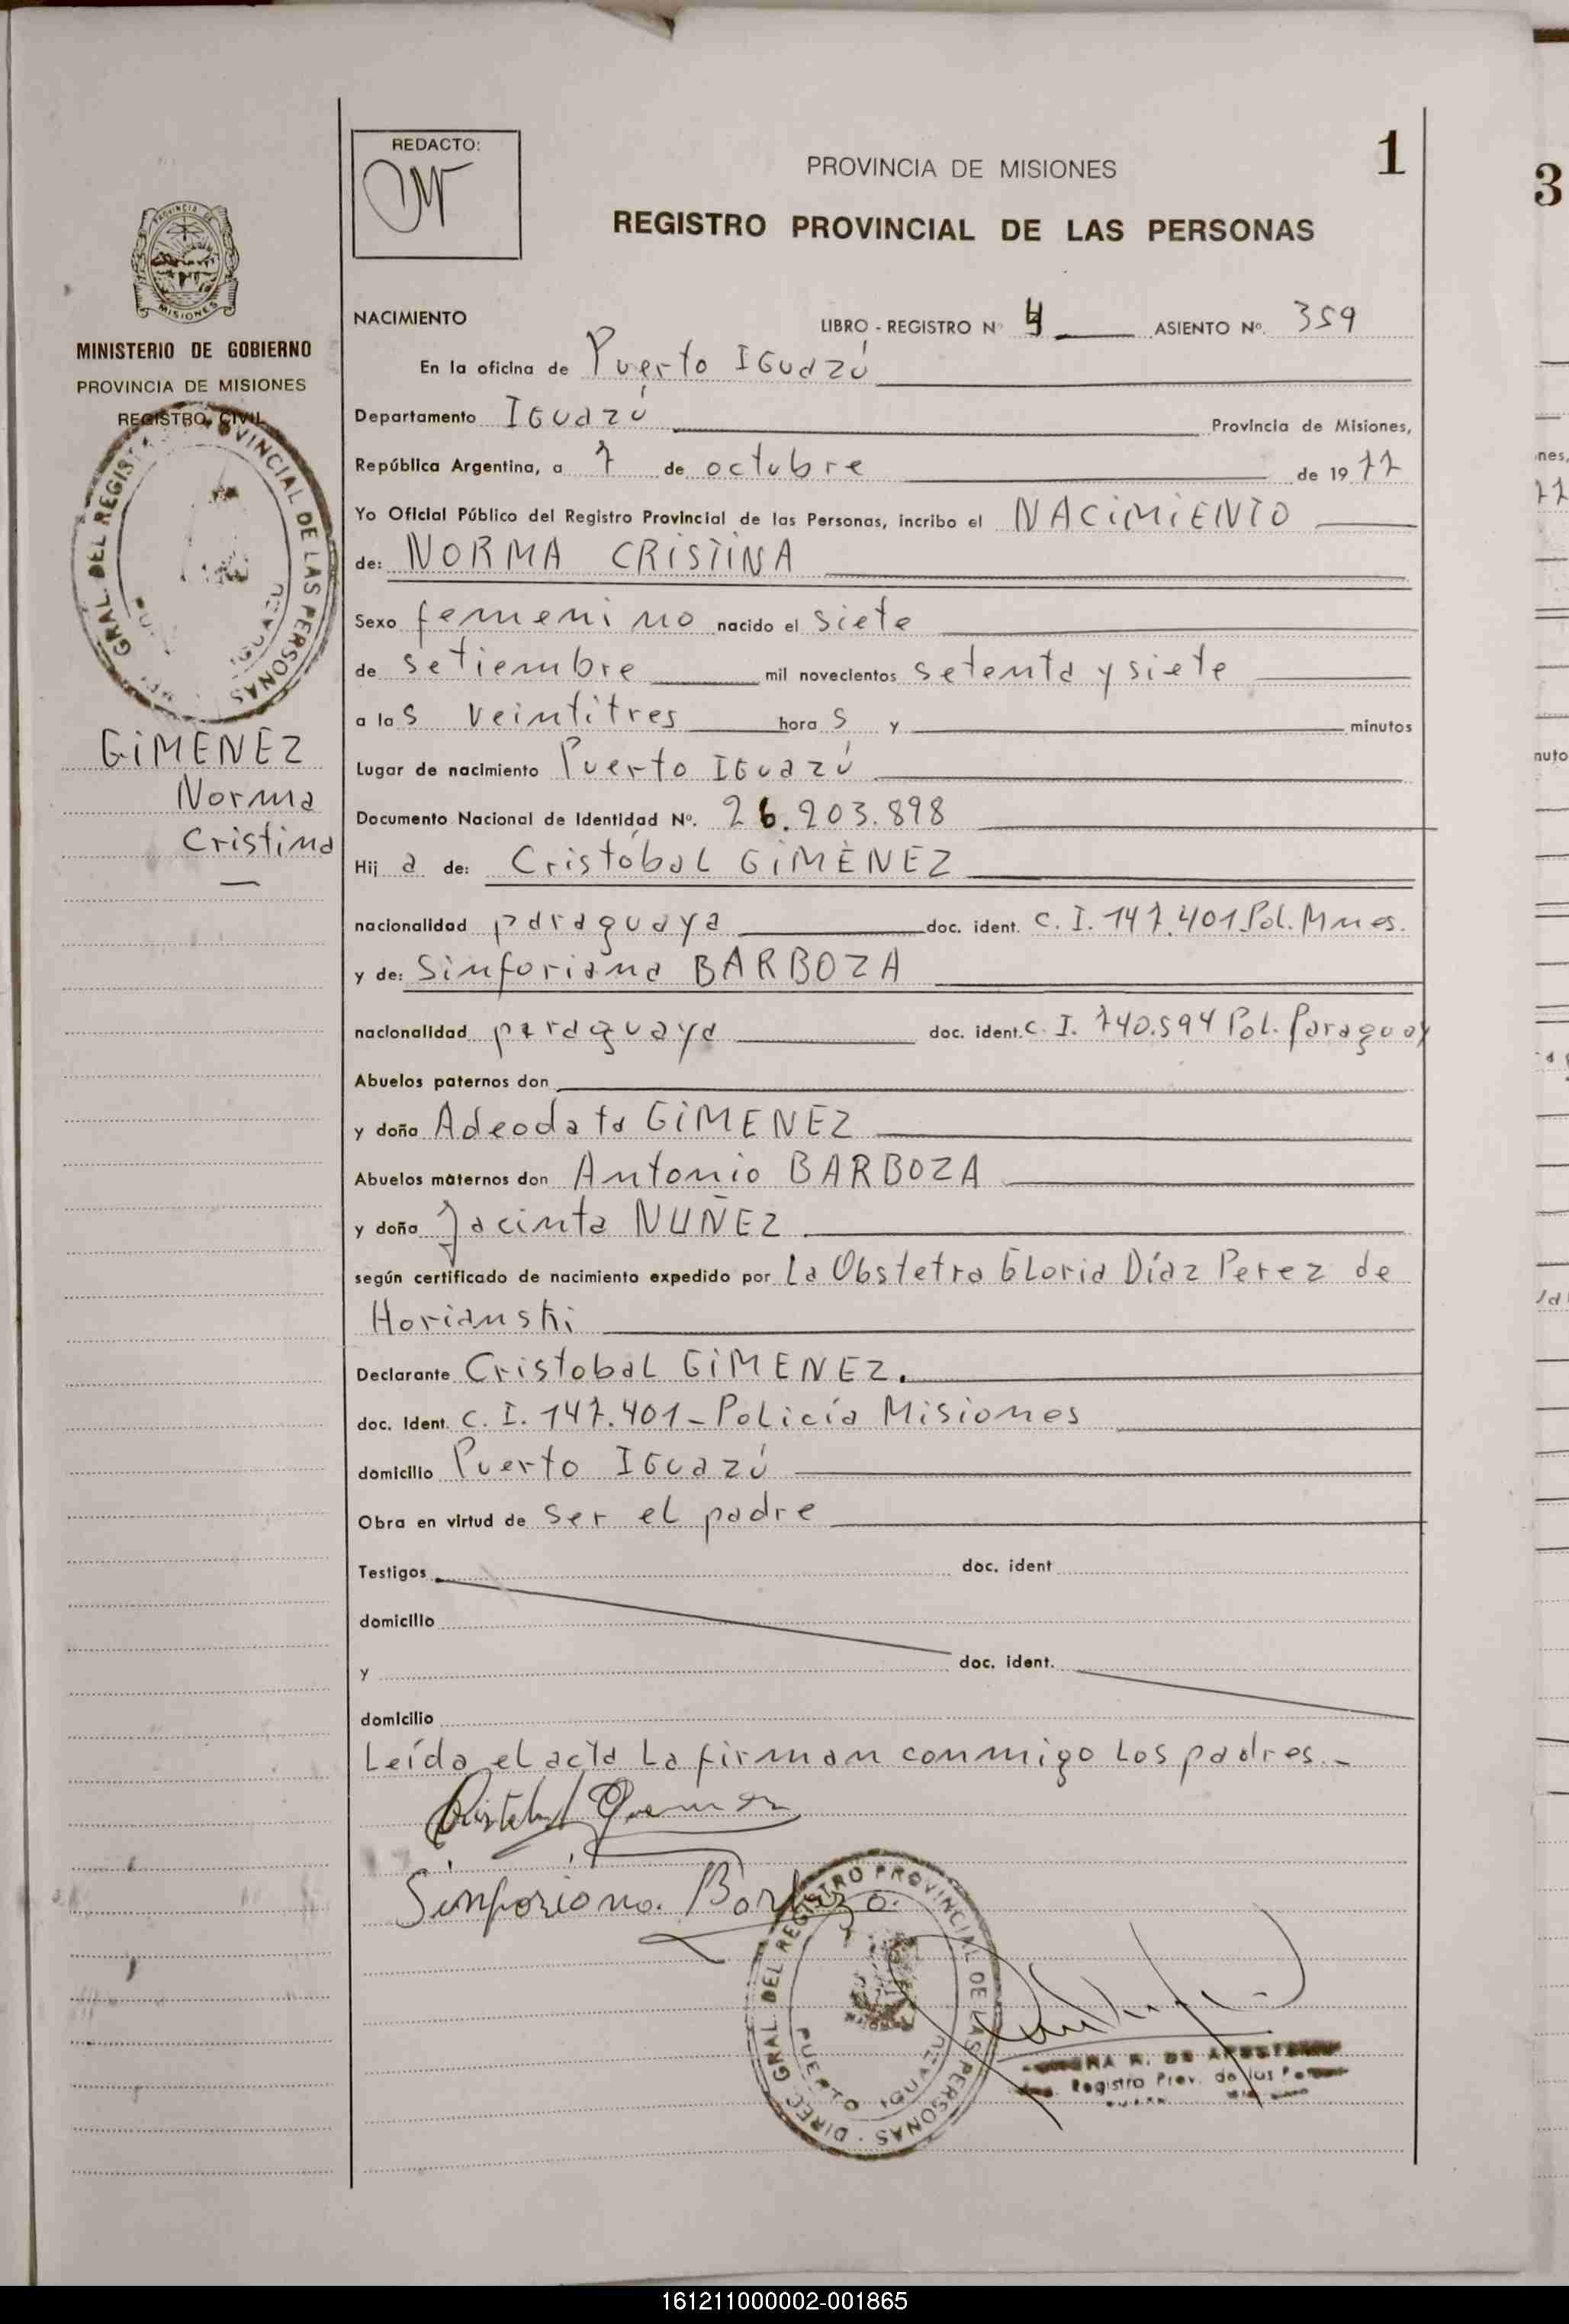 REDACTO:
PROVINCIA DE MISIONES
1
REGISTRO PROVINCIAL DE LAS PERSONAS
3
PROVINCIA DE
MISIONES
MINISTERIO DE GOBIERNO
PROVINCIA DE MISIONES
REGISTRO CIVIL
GRAL. DEL REGISTRO PROVINCIAL DE LAS PERSONAS
IGUAZU
GiMENEZ
Norma
Cristina
NACIMIENTO
LIBRO - REGISTRO Nº 4 ASIENTO Nº. 359
En la oficina de Puerto IGuazú
Departamento IGuazú Provincia de Misiones,
República Argentina, a 7 de octubre de 1977
Yo Oficial Público del Registro Provincial de las Personas, incribo el NACiMiENTO
de: NORMA CRiSTiNA
Sexo femenino nacido el siete
de setiembre mil novecientos setenta y siete
a las veintitres horas y minutos
Lugar de nacimiento Puerto IGuazú
Documento Nacional de Identidad Nº. 26.203.898
Hija de: Cristóbal GiMÉNEZ
nacionalidad paraguaya doc. ident. C. I. 147.401 Pol. Mnes.
y de: Sinforiana BARBOZA
nacionalidad paraguaya doc. ident. C. I. 740.594 Pol. Paraguay
Abuelos paternos don
y doña Adeodata GiMENEZ
Abuelos maternos don Antonio BARBOZA
y doña Jacinta NUÑEZ
según certificado de nacimiento expedido por La Obstetra GLoria Díaz Perez de
Horianski
Declarante Cristobal GiMENEZ.
doc. Ident. C. I. 147.401 - Policía Misiones
domicilio Puerto IGuazú
Obra en virtud de ser el padre
Testigos doc. ident
domicilio
y doc. ident.
domicilio
Leída el acta La firman conmigo Los padres.-
Cristobal Gimenez
Sinforiana Barboza.
DIREC. GRAL. DEL REGISTRO PROVINCIAL DE LAS PERSONAS
PUERTO IGUAZU
Registro Prov. de las
161211000002-001865